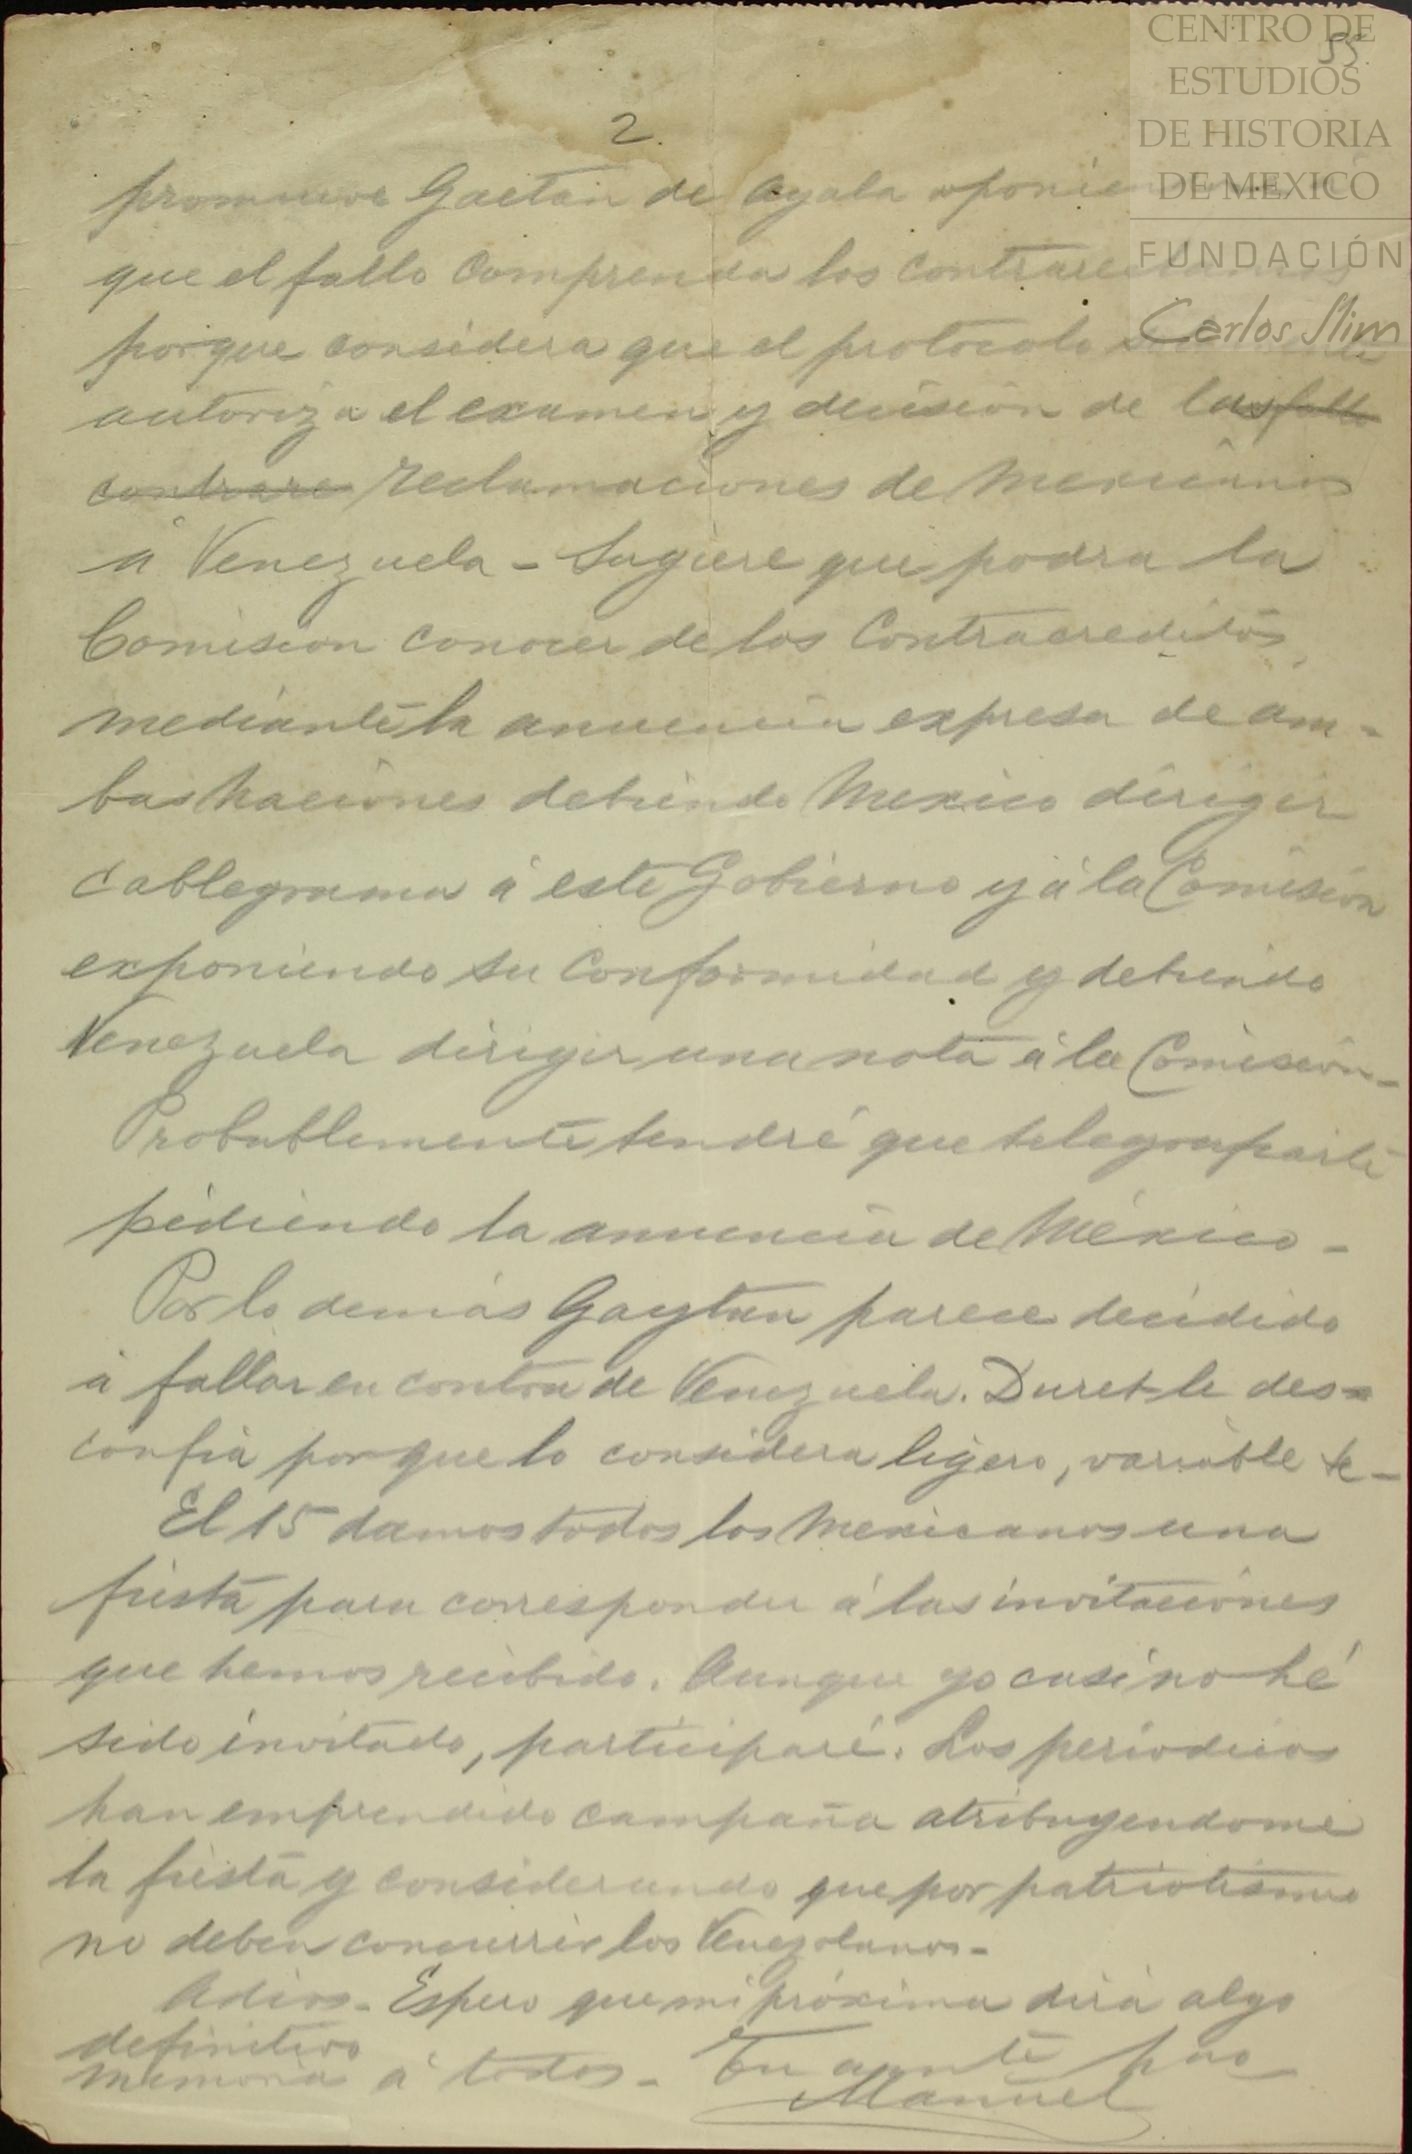 CENTRO DE
ESTUDIOS
DE HISTORIA
DE MEXICO
FUNDACIÓN
Carlos Slim
55
2.
promueve Gaetan de Ayala oponiendose á
que el fallo comprenda los contrareclamos
porque considera que el protocolo
autoriza el examen y decision de las fallo
contrare reclamaciones de Mexicanos
á Venezuela - Sugiere que podra la
Comision conocer de los Contracreditos,
mediante la anuencia expresa de am-
bas Naciones debiendo Mexico dirigir
cablegrama á este Gobierno y á la Comision
exponiendo su conformidad y debiendo
Venezuela dirigir una nota á la Comision -
Probablemente tendré que telegrafiarte
pidiendo la anuencia de México -
Por lo demás Gaytan parece decidido
á fallar en contra de Venezuela. Duret le des-
confia porque lo considera ligero, variable &-
El 15 damos todos los Mexicanos una
fiesta para corresponder á las invitaciones
que hemos recibido. Aunque yo casi no hé
sido invitado, participaré. Los periodicos
han emprendido campaña atribuyendome
la fiesta y considerando que por patriotismo
no deben concurrir los Venezolanos -
Adios - Espero que mi próxima dirá algo
definitivo
Memorias á todos - Tu amte hno
Manuel